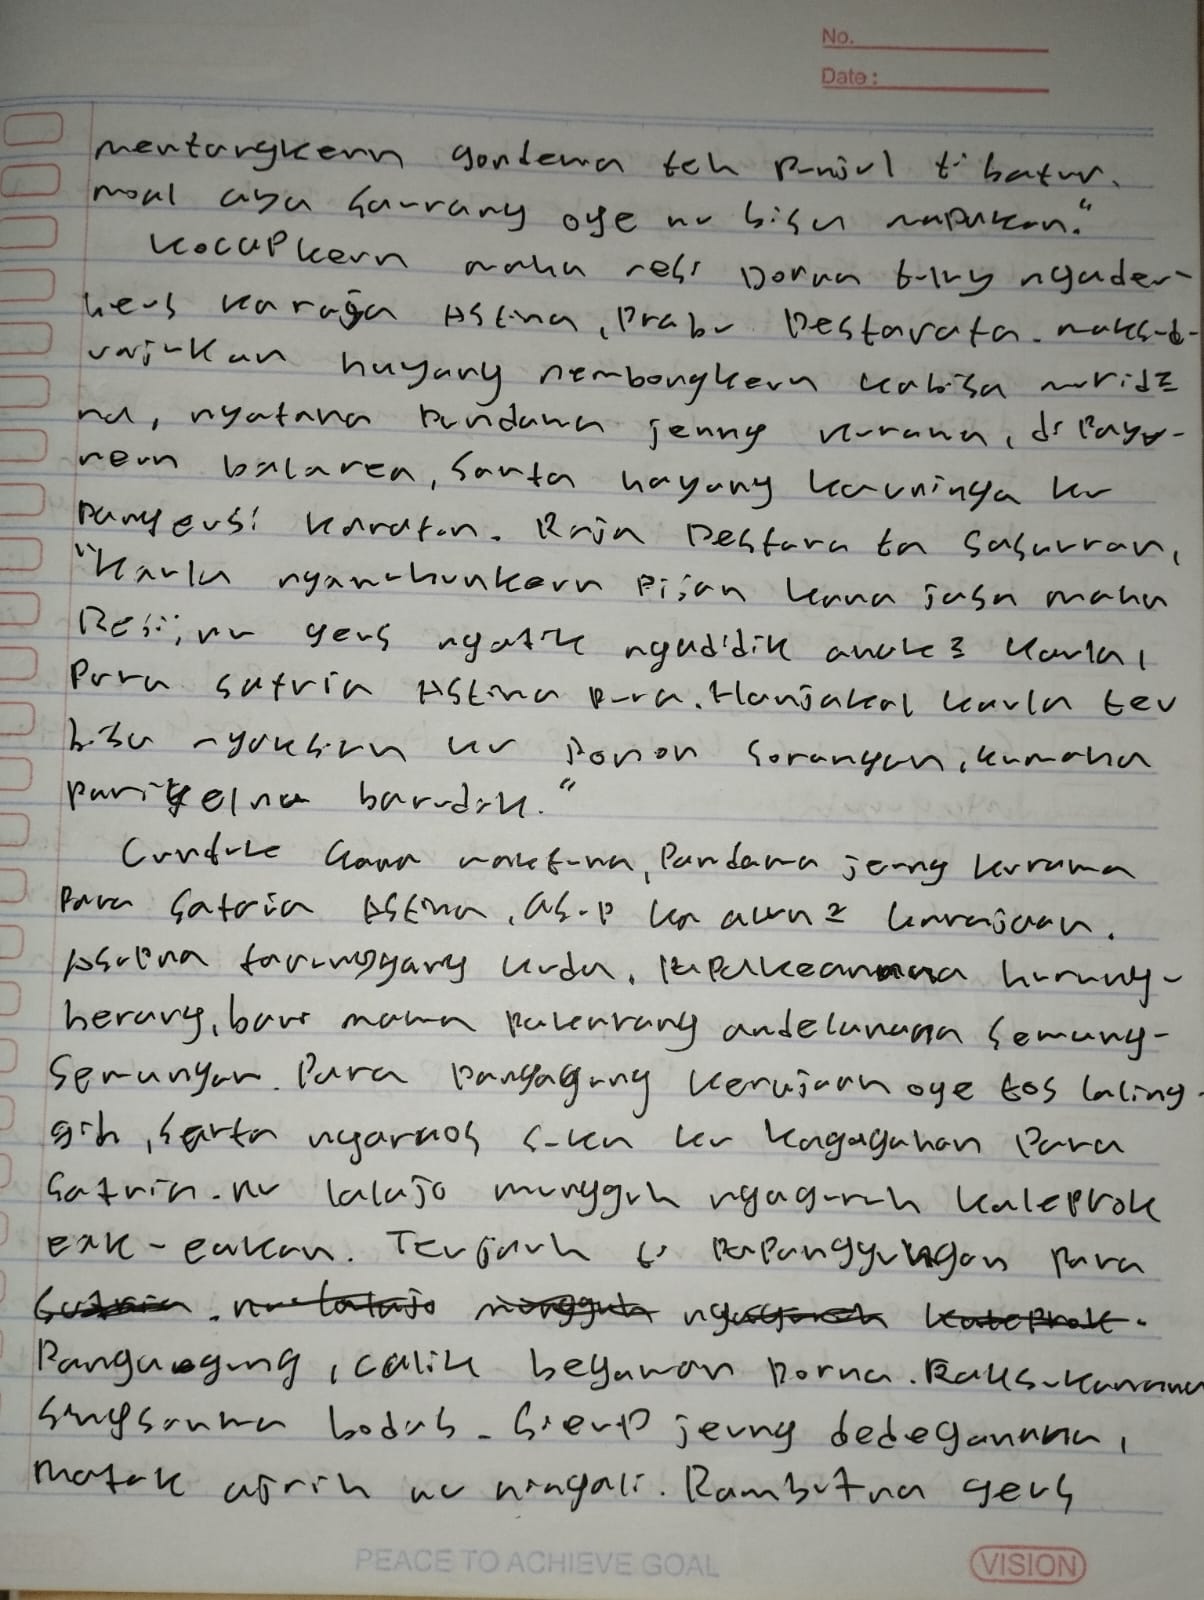 No.
Date:
mentangkeun gondewa teh punjul ti batur.
moal aya saurang oge nu bisa napakan."
Kocapkeun maha resi Dorna tuluy ngadeu-
heus ka raja Astina, Prabu Destarata. maksud-
unjukan hayang nembongkeun kabisa murid2
na, nyatana Pandawa jeung Kurawa, di Payu-
neun balarea, Santa hayang kauninga ku
Pangeusi karaton. Raja Destarata sasauran,
"Kaula nganuhunkeun Pisan kana jasa maha
Resi, nu geus ngatik ngadidik anak2 kaula,
Para satria Astina Pura. Hanjakal kaula teu
bisa nyaksian ku Panon sorangan, kumaha
parigelna barudak."
Cunduk kana waktuna, Pandawa jeung kurawa
Para Satria Astina, asup ka alun2 karajaan.
Asupna tarunggang kuda, papakeanana hurung-
herang, bari mawa pakarang andelanana Semang-
Semangan. Para pangagung kerajaan oge tos laling-
gih, Sarta ngaraos suka ku kagagahan Para
Satria. nu lalajo mungguh ngaguruh kaleprok
eak-eakan. Terjauh ti papanggungan Para
Satria. nu lalajo mungguh ngaguruh kaleprok.
Pangagung, calik begawan Dorna. Raksukanana
Sungsarwa bodas. Sieup jeung dedeganana,
Matak ajrih nu ningali. Rambutna geus
PEACE TO ACHIEVE GOAL
VISION